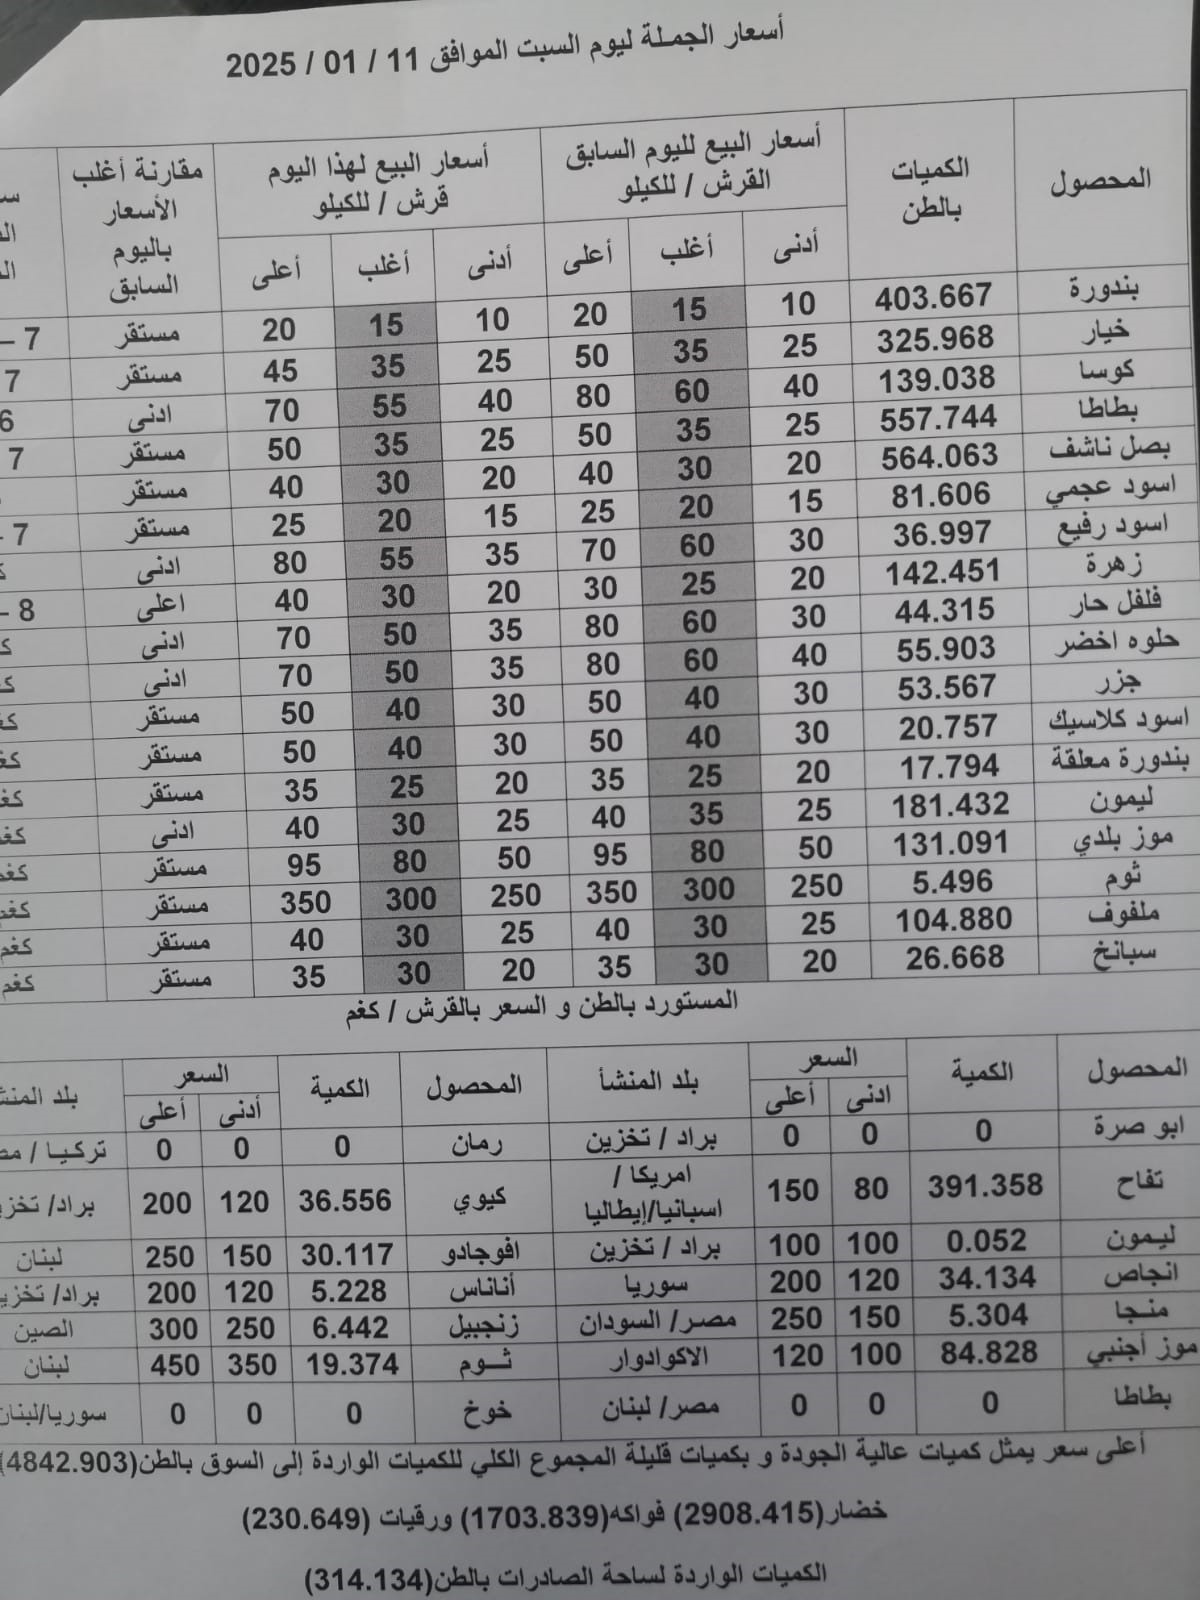 أسعار الجملة ليوم السبت الموافق 11 / 01 / 2025
المحصول الكميات بالطن أسعار البيع لليوم السابق القرش / للكيلو أسعار البيع لهذا اليوم قرش / للكيلو مقارنة أغلب الأسعار باليوم السابق
أدنى أغلب أعلى أدنى أغلب أعلى
بندورة 403.667 10 15 20 10 15 20 مستقر 7 –
خيار 325.968 25 35 50 25 35 45 مستقر 7
كوسا 139.038 40 60 80 40 55 70 ادنى 6
بطاطا 557.744 25 35 50 25 35 50 مستقر 7
بصل ناشف 564.063 20 30 40 20 30 40 مستقر
اسود عجمي 81.606 15 20 25 15 20 25 مستقر 7 -
اسود رفيع 36.997 30 60 70 35 55 80 ادنى
زهرة 142.451 20 25 30 20 30 40 اعلى 8 –
فلفل حار 44.315 30 60 80 35 50 70 ادنى
حلوه اخضر 55.903 40 60 80 35 50 70 ادنى
جزر 53.567 30 40 50 30 40 50 مستقر
اسود كلاسيك 20.757 30 40 50 30 40 50 مستقر
بندورة معلقة 17.794 20 25 35 20 25 35 مستقر
ليمون 181.432 25 35 40 25 30 40 ادنى
موز بلدي 131.091 50 80 95 50 80 95 مستقر
ثوم 5.496 250 300 350 250 300 350 مستقر كغم
ملفوف 104.880 25 30 40 25 30 40 مستقر كغم
سبانخ 26.668 20 30 35 20 30 35 مستقر كغم
المستورد بالطن و السعر بالقرش / كغم
المحصول الكمية السعر بلد المنشأ المحصول الكمية السعر بلد
ادنى أعلى أدنى أعلى
ابو صرة 0 0 0 براد / تخزين رمان 0 0 0 تركيا /
تفاح 391.358 80 150 امريكا / اسبانيا/إيطاليا كيوي 36.556 120 200 براد/
ليمون 0.052 100 100 براد / تخزين افوجادو 30.117 150 250 لبنان
انجاص 34.134 120 200 سوريا أناناس 5.228 120 200 براد/
منجا 5.304 150 250 مصر/ السودان زنجبيل 6.442 250 300 الصين
موز أجنبي 84.828 100 120 الاكوادوار ثوم 19.374 350 450 لبنان
بطاطا 0 0 0 مصر/ لبنان خوخ 0 0 0 سوريا/لبنان
أعلى سعر يمثل كميات عالية الجودة و بكميات قليلة المجموع الكلي للكميات الواردة إلى السوق بالطن(4842.903)
خضار(2908.415) فواكه(1703.839) ورقيات (230.649)
الكميات الواردة لساحة الصادرات بالطن(314.134)